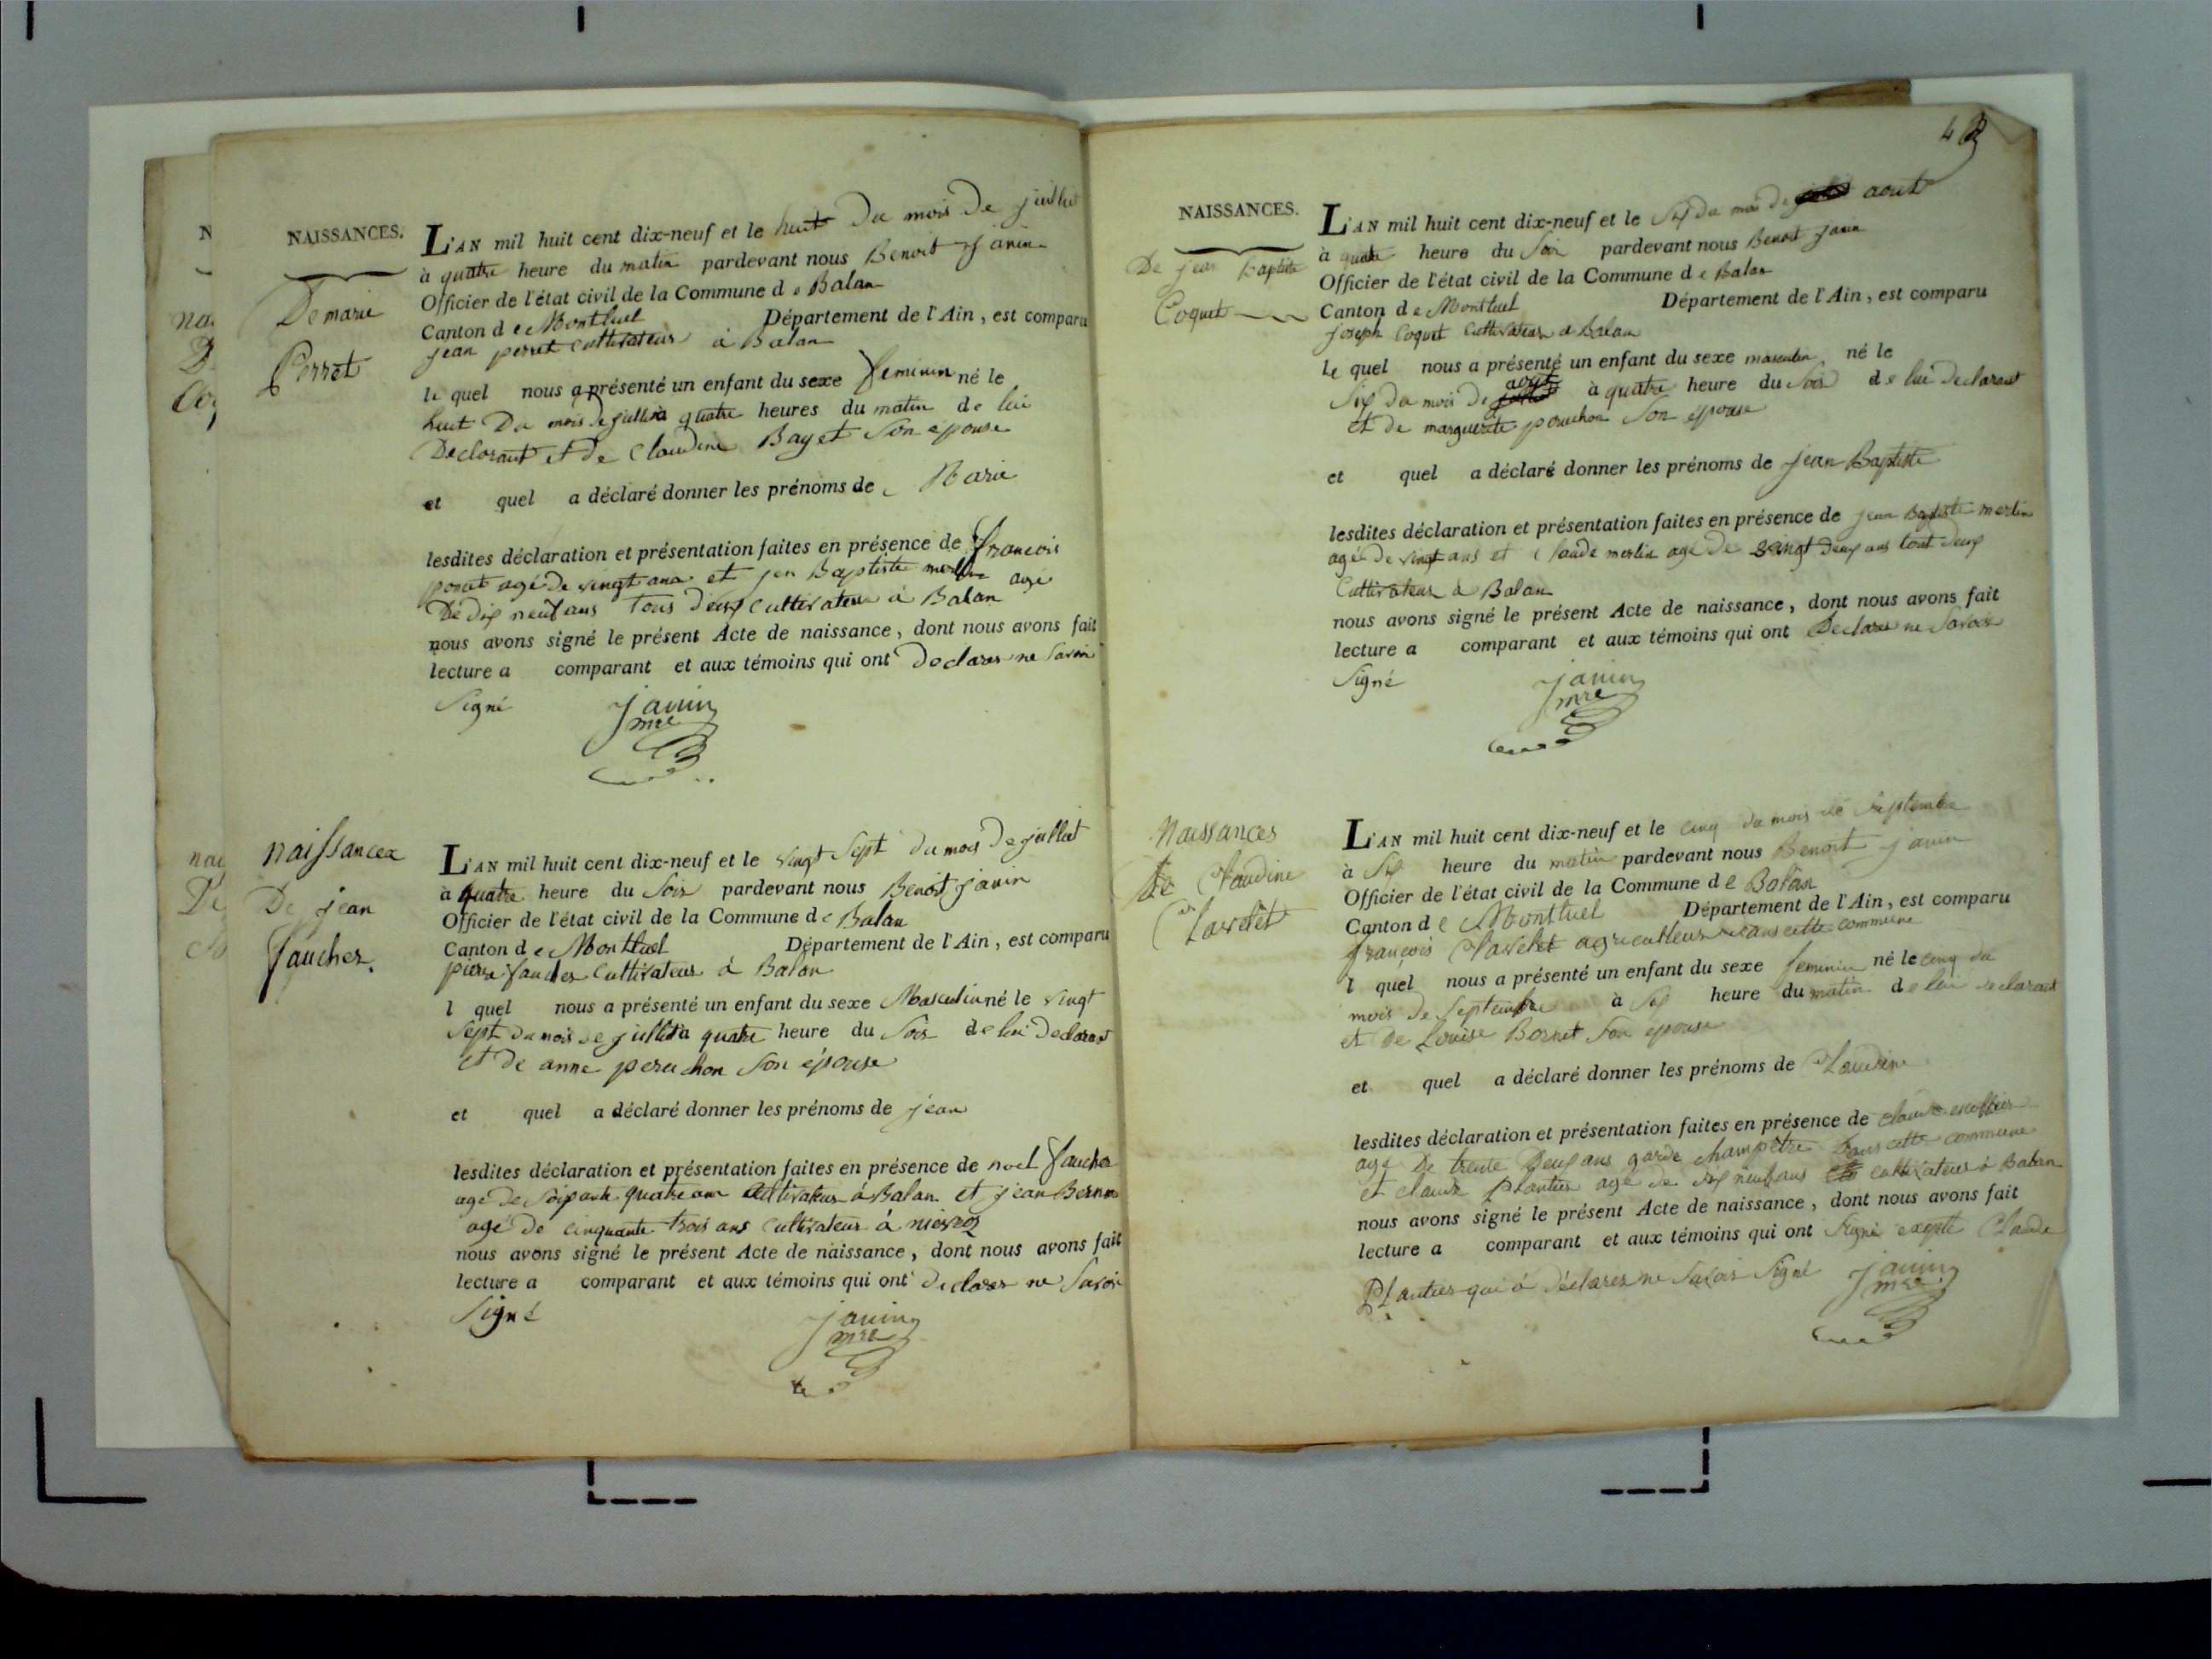 N
na
D
Coq
nai
De
NAISSANCES.
De marie
Perret
L'AN mil huit cent dix-neuf et le huit Du mois De juillet
à quatre heure du matin pardevant nous Benoit janin
Officier de l'état civil de la Commune de Balan
Canton de Montluel Département de l'Ain, est comparu
jean perret cultivateur à Balan
le quel nous a présenté un enfant du sexe feminin né le
huit Du mois de juillet à quatre heures du matin de lui
Declarant et De Claudine Bayet Son epouse
et quel a déclaré donner les prénoms de Marie
lesdites déclaration et présentation faites en présence de francois
ponit agé De vingt ans et jean Baptiste merlin agé
De dix neuf ans tous deux cultivateur à Balan
nous avons signé le présent Acte de naissance, dont nous avons fait
lecture a comparant et aux témoins qui ont Declarer ne Savoir
Signé janin
mre
naissances
De jean
faucher.
L'AN mil huit cent dix-neuf et le vingt Sept du mois De juillet
à quatre heure du Soir pardevant nous Benoit janin
Officier de l'état civil de la Commune de Balan
Canton de Montluel Département de l'Ain, est comparu
pierre faucher Cultivateur à Balan
l quel nous a présenté un enfant du sexe Masculin né le vingt
Sept du mois de juillet à quatre heure du Soir de lui Declarant
et De anne peruchon Son épouse
et quel a déclaré donner les prénoms de jean
lesdites déclaration et présentation faites en présence de noel faucher
age de Soixante quatre ans Cultivateur à Balan et jean Bernin
agé De cinquante trois ans cultivateur à nievroz
nous avons signé le présent Acte de naissance, dont nous avons fait
lecture a comparant et aux témoins qui ont declarer ne Savoir
Signé janin
mre
4
NAISSANCES.
De jean Baptiste
Coquet
L'AN mil huit cent dix-neuf et le Six du mois de aout
à quatre heure du Soir pardevant nous Benoit janin
Officier de l'état civil de la Commune de Balan
Canton de Montluel Département de l'Ain, est comparu
joseph Coquet Cultivateur à Balan
le quel nous a présenté un enfant du sexe masculin né le
Six du mois De aout à quatre heure du Soir de lui declarant
et de marguerite pouchon Son épouse
et quel a déclaré donner les prénoms de jean Baptiste
lesdites déclaration et présentation faites en présence de jean Baptiste merlin
agé de vingt ans et Claude merlin agé de vingt deux ans tout deux
Cultivateur à Balan
nous avons signé le présent Acte de naissance, dont nous avons fait
lecture a comparant et aux témoins qui ont Declarer ne Savoir
Signé janin
mre
Naissances
De Claudine
Clavelet
L'AN mil huit cent dix-neuf et le cinq du mois de Septembre
à Six heure du matin pardevant nous Benoit janin
Officier de l'état civil de la Commune de Balan
Canton de Montluel Département de l'Ain, est comparu
françois Clavelet agriculteur dans cette commune
l quel nous a présenté un enfant du sexe feminin né le cinq du
mois de Septembre à Six heure du matin de lui declarant
et De Louise Bornet Son epouse
et quel a déclaré donner les prénoms de Claudine
lesdites déclaration et présentation faites en présence de claude escoffier
agé De trente Deux ans garde champêtre Dans cette commune
et claude Plantier agé de dix neuf ans cultivateur à Balan
nous avons signé le présent Acte de naissance, dont nous avons fait
lecture a comparant et aux témoins qui ont Signé excepté Claude
Plantier qui à Déclarer ne Savoir Signé janin
mre